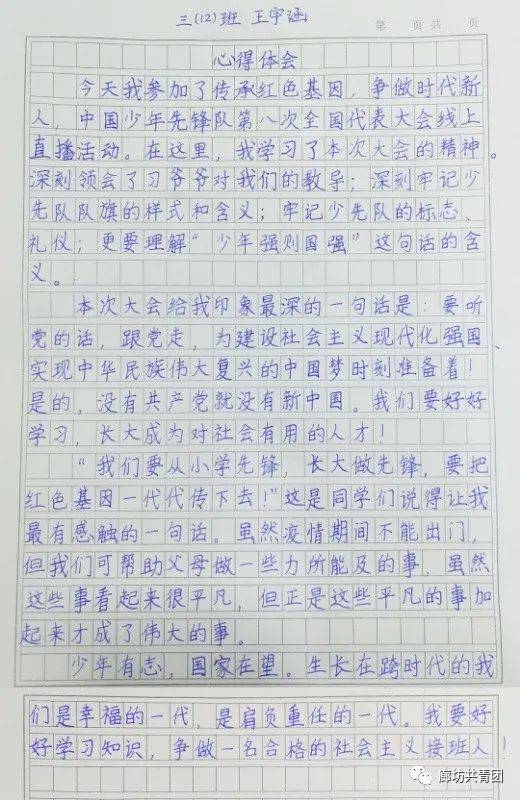 三(12)班 王宇涵
第 页共 页
心得体会
今天我参加了传承红色基因，争做时代新
人，中国少年先锋队第八次全国代表大会线上
直播活动。在这里，我学习了本次大会的精神。
深刻领会了习爷爷对我们的教导；深刻牢记少
先队队旗的样式和含义；牢记少先队的标志、
礼仪；更要理解“少年强则国强”这句话的含
义。
本次大会给我印象最深的一句话是：要听
党的话，跟党走，为建设社会主义现代化强国、
实现中华民族伟大复兴的中国梦时刻准备着！
是的，没有共产党就没有新中国。我们要好好
学习，长大成为对社会有用的人才！
“我们要从小学先锋，长大做先锋，要把
红色基因一代代传下去！”这是同学们说得让我
最有感触的一句话。虽然疫情期间不能出门，
但我们可帮助父母做一些力所能及的事，虽然
这些事看起来很平凡，但正是这些平凡的事加
起来才成了伟大的事。
少年有志，国家在望。生长在跨时代的我
们是幸福的一代，是肩负重任的一代。我要好
好学习知识，争做一名合格的社会主义接班人！
廊坊共青团